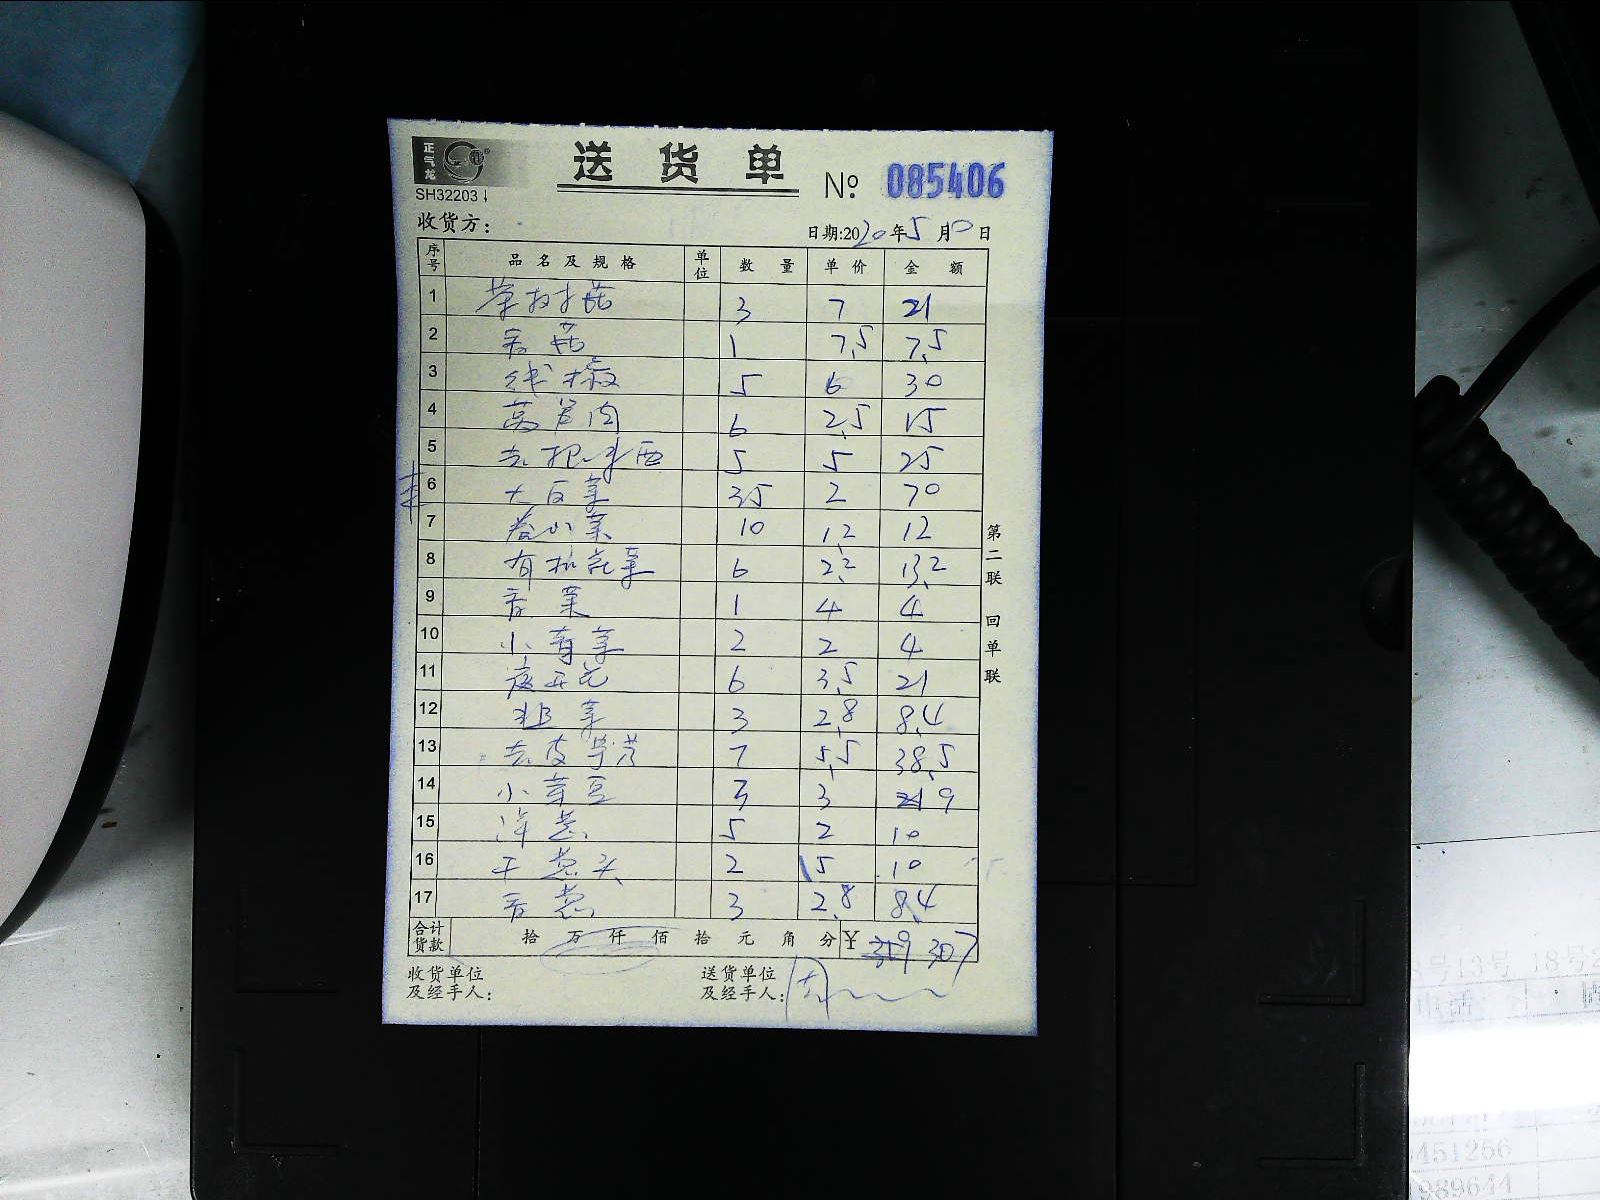 正气龙
SH32203
送货单
№ 085406
收货方:
日期:2020年5月10日
序号 品名及规格 单位 数量 单价 金额
1 茶树菇 3 7 21
2 香菇 1 7.5 7.5
3 线椒 5 6 30
4 莴笋肉 6 2.5 15
5 去把味西 5 5 25
6 大白菜 35 2 70
7 卷心菜 10 1.2 12
8 有机花菜 6 2.2 13.2
9 香菜 1 4 4
10 小青菜 2 2 4
11 6 3.5 21
12 韭菜 3 2.8 8.4
13 去皮茡荠 7 5.5 38.5
14 小芽豆 3 3 9
15 洋葱 5 2 10
16 干葱头 2 5 10
17 香葱 3 2.8 8.4
合计货款 拾万仟佰拾元角分 ¥ 319 307
收货单位
及经手人:
送货单位
及经手人:
第二联 回单联
451256
989644